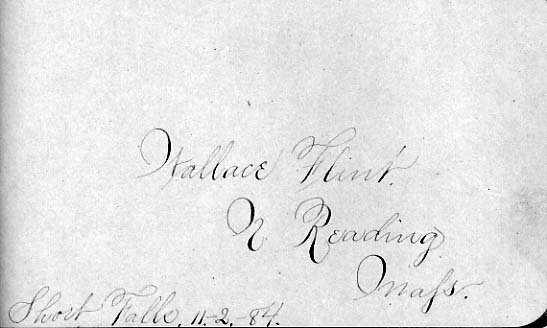 Wallace Flint.
N. Reading
Mass.
Short Falls, 11-2-84.